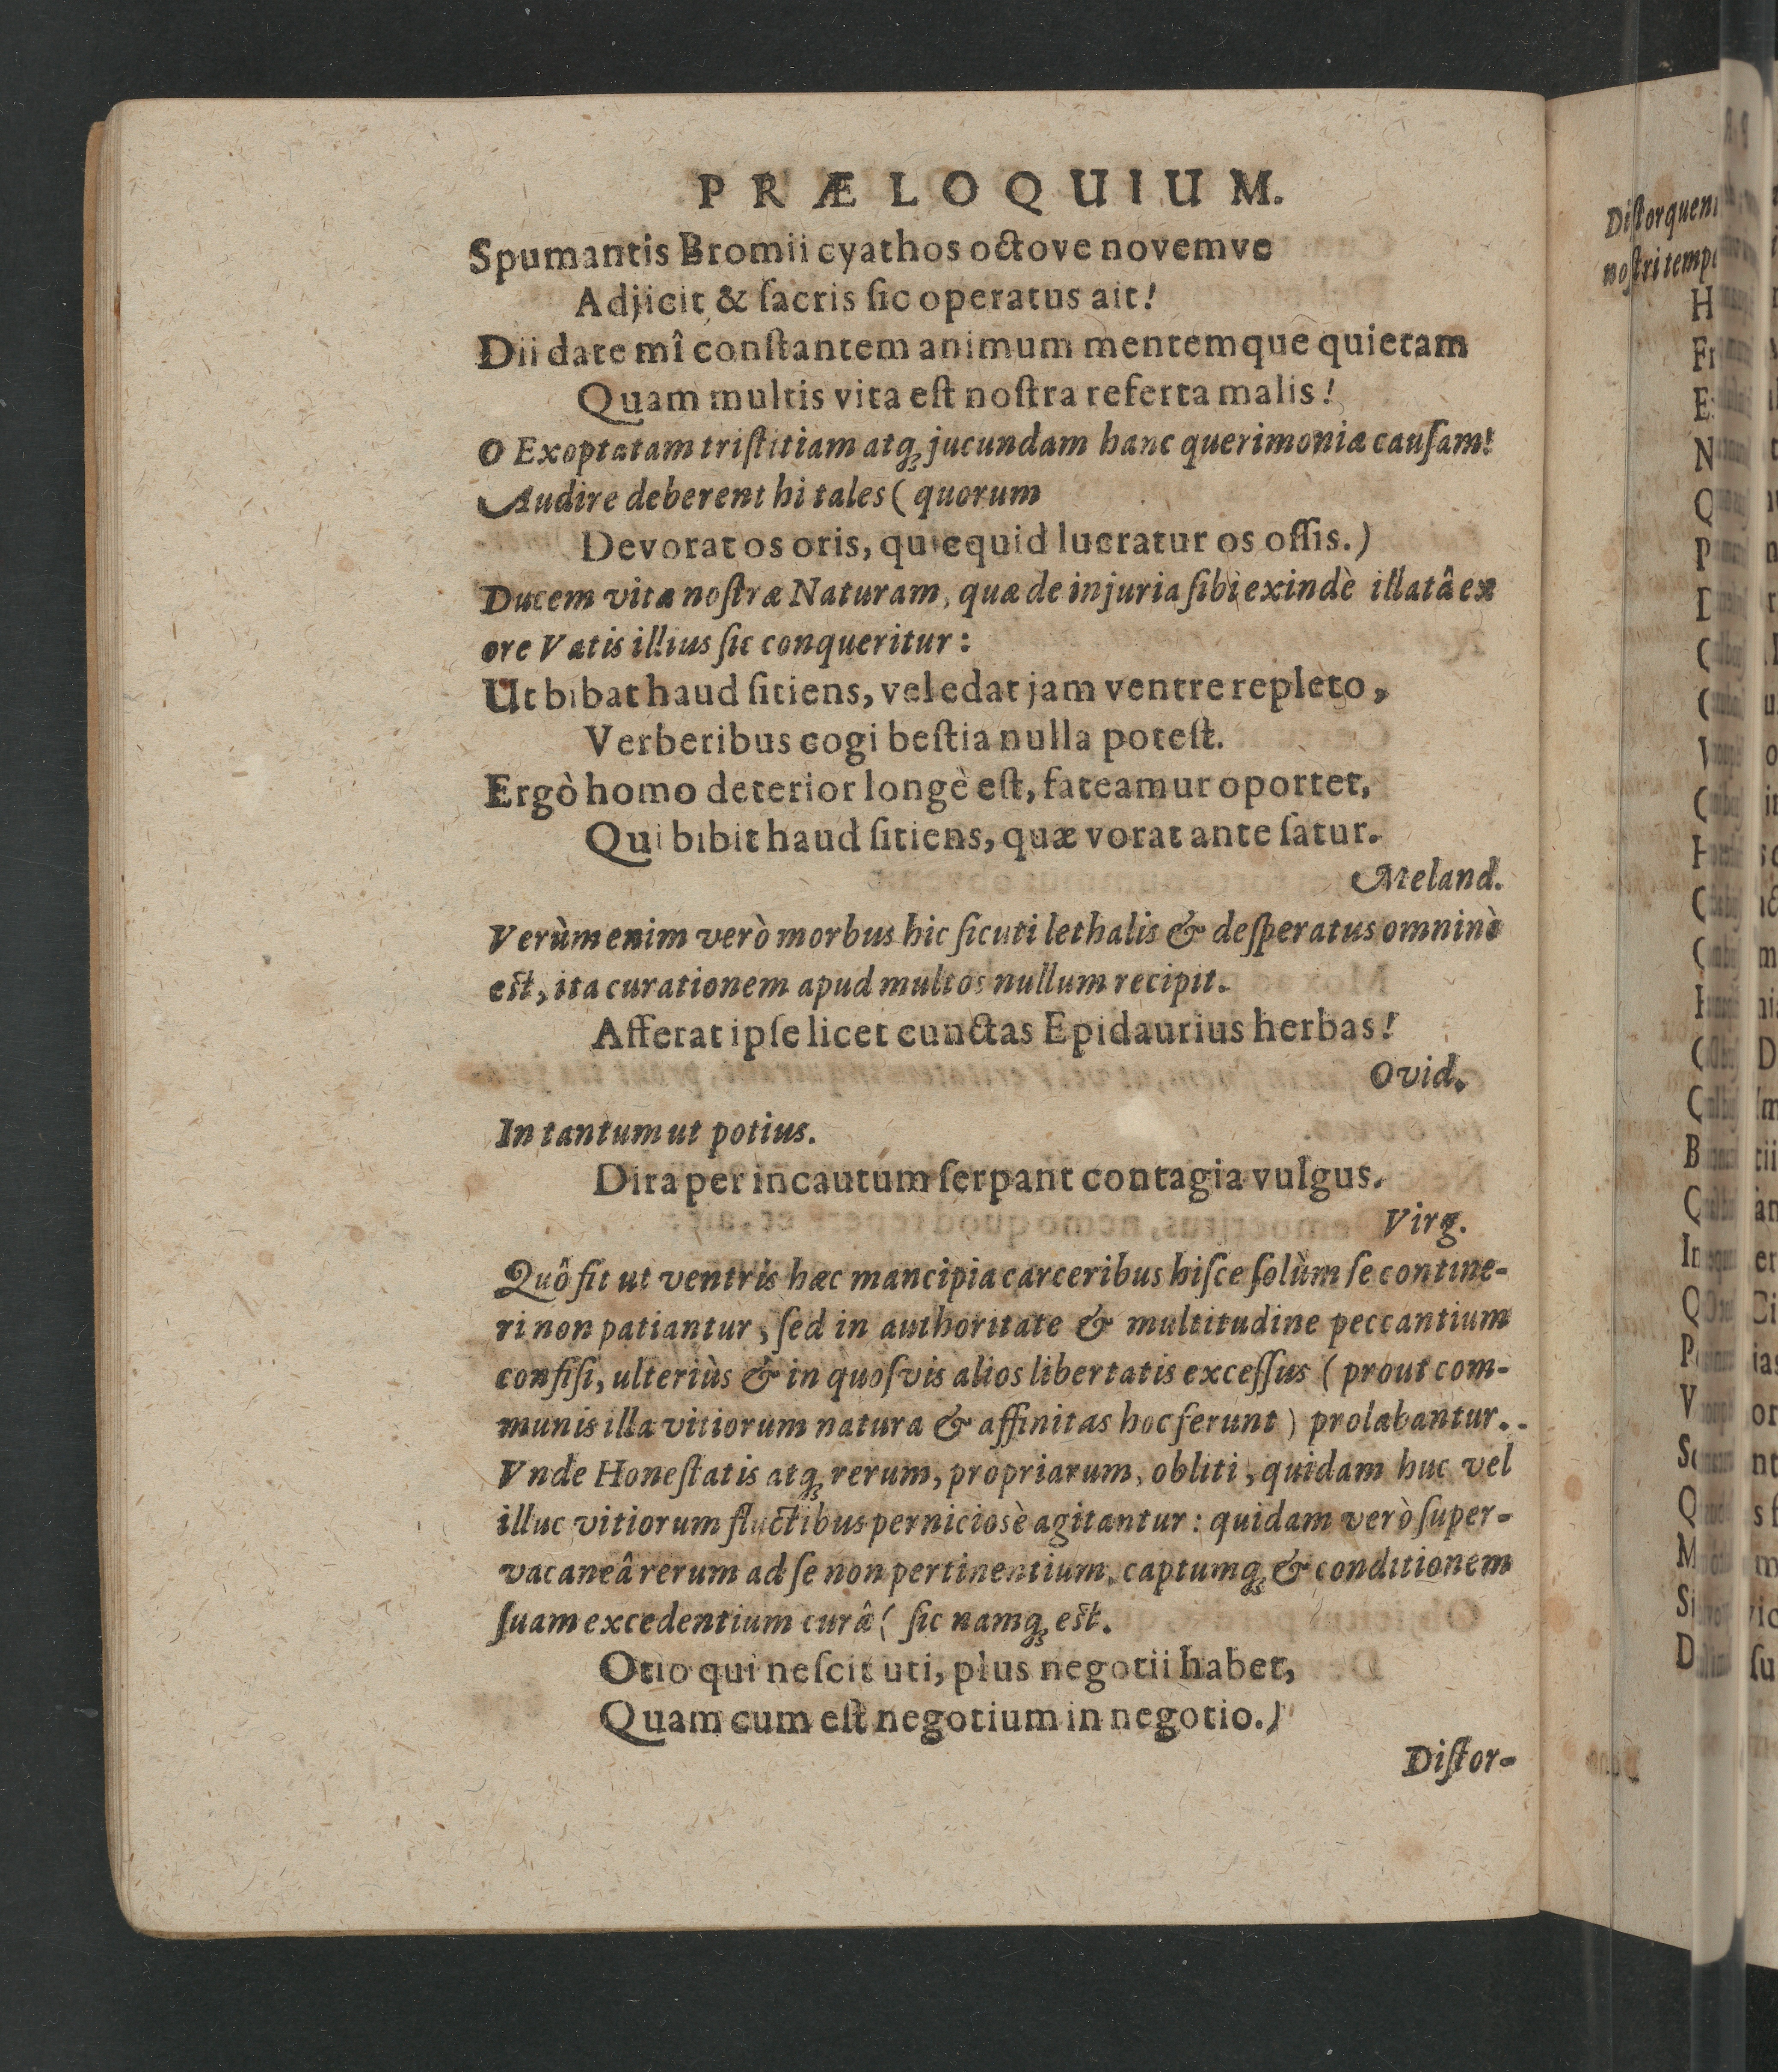 PRÆLOQUIUM.
Spumantis Bromii cyathos octove novemve
Adjicit & ſacris ſic operatus ait!
Dii date mî conſtantem animum mentemque quietam
Quam multis vita eſt noſtra referta malis!
O Exoptatam triſtitiam atq; jucundam hanc querimoniæ cauſam!
Audire deberent hi tales ( quorum
Devorat os oris, quicquid lucratur os oſſis.)
Ducem vitæ noſtræ Naturam, quæ de injuria ſibi exindè illatâ ex
ore Vatis illius ſic conqueritur:
Ut bibat haud ſitiens, vel edat jam ventre repleto,
Verberibus cogi beſtia nulla poteſt.
Ergò homo deterior longè eſt, fateamur oportet,
Qui bibit haud ſitiens, quæ vorat ante ſatur.
Meland.
Verùm enim verò morbus hic ſicuti lethalis & deſperatus omninò
eſt, ita curationem apud multos nullum recipit.
Afferat ipſe licet cunctas Epidaurius herbas!
Ovid.
In tantum ut potius.
Dira per incautum ſerpant contagia vulgus.
Virg.
Quô fit ut ventris hæc mancipia carceribus hiſce ſolùm ſe contine-
ri non patiantur, ſed in authoritate & multitudine peccantium
confiſi, ulteriùs & in quoſvis alios libertatis exceſſus ( prout com-
munis illa vitiorum natura & affinitas hoc ferunt) prolabantur.
Vnde Honeſtatis atq; rerum, propriarum, obliti, quidam huc vel
illuc vitiorum fluctibus perniciosè agitantur: quidam verò ſuper-
vacaneâ rerum ad ſe non pertinentium, captumq; & conditionem
ſuam excedentium curâ ( ſic namq; eſt.
Otio qui neſcit uti, plus negotii habet,
Quam cum eſt negotium in negotio.)
Diſtor-
Diſtorquen
noſtri temp